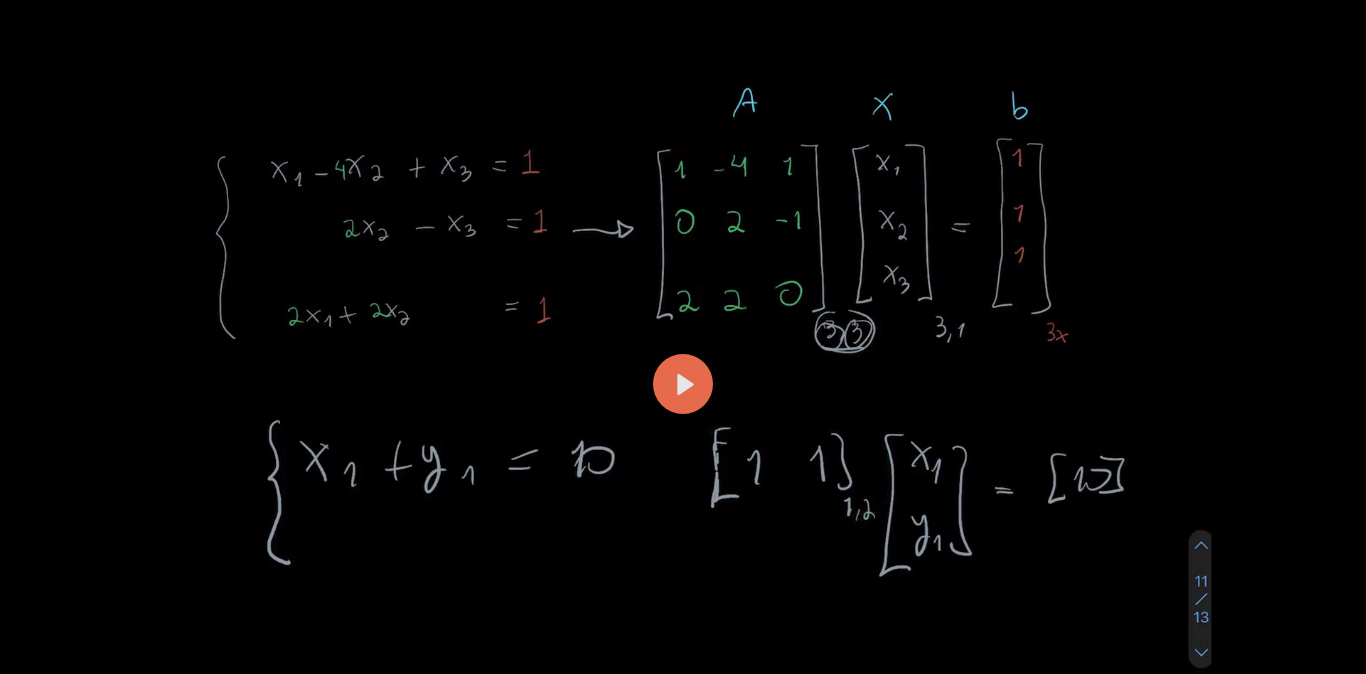 A X b
x₁ - 4x₂ + x₃ = 1
2x₂ - x₃ = 1
2x₁ + 2x₂ = 1
1 -4 1
0 2 -1
2 2 0
3,3
x₁
x₂
x₃
3,1
=
1
1
1
3x
x₁ + y₁ = 10
[1 1]
1,2
x₁
y₁
= [10]
11
/
13